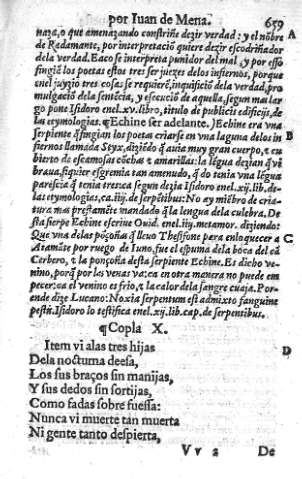 por Iuan de Mena. 659
naza, o que amenazando constriñe dezir verdad: y el nõbre A
de Radamante, por interpretació quiere dezir escodriñador
dela verdad. Eaco se interpreta punidor del mal, y por esso
fingió los poetas estos tres ser juezes delos infiernos, porque
enel juyzio tres cosas se requieré, inquisició dela verdad, pro
mulgació dela sentécia, y esecució de aquella, segun mas lar
go pone Isidoro enel.xv.libro, titulo de publicis edificijs, de
las etymologias. ¶ Echine ser adelante. Echine era vna
serpiente q̃ fingian los poetas criarse en vna laguna delos in B
fiernos llamada Styx, diziédo q̃ auia muy gran cuerpo, y cu
bierto de escamosas cõchas amarillas: la légua dezian q̃ vi
braua, siquier esgremia tan amenudo, q̃ do tenia vna légua
parescia q̃ tenia tres: ca segun dezia Isidoro enel.xij.lib. de-
las etymologias, ca.iiij. de serpétibus: No ay miébro de cria-
tura mas prestaméte mandado q̃ la lengua dela culebra. De
sta sierpe Echine escriue Ouid. enel.iiij.metamor. diziendo:
Que vna delas poçoñas q̃ lleuo Thesifone pera enloquecer a C
Atamãte por ruego de Iuno, fue el espuma dela boca del cã
Cerbero, y la ponçoña desta serpiente Echine. Es dicho ve-
nino, porq̃ por las venas va: ca en otra manera no puede em
pecer: ca el venino es frio, y la calor dela sangre cuaja. Por-
ende dize Lucano: Noxia serpentum est admixto sanguine
pestis. Isidoro lo testifica enel.xij.lib.cap. de serpentibus.
¶ Copla X.
Item vi alas tres hijas D
Dela nocturna deesa,
Los sus braços sin manijas,
Y sus dedos sin sortijas,
Como fadas sobre fuessa:
Nunca vi muerte tan muerta
Ni gente tanto despierta,
V v 2 De